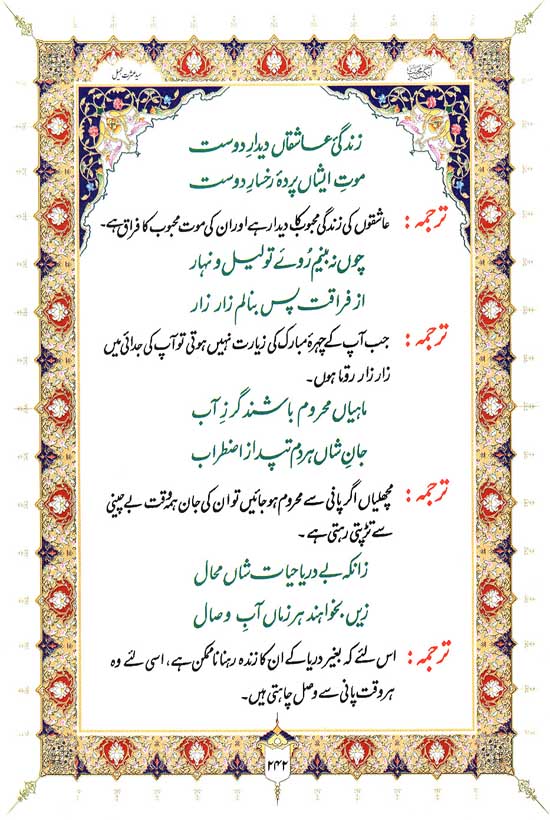 زندگیٔ عاشقاں دیدارِ دوست
موتِ ایشاں پردۂ رخسارِ دوست
ترجمہ : عاشقوں کی زندگی محبوب کا دیدار ہے اور ان کی موت محبوب کا فراق ہے۔
چوں نہ بینم رُوئے تو لیل و نہار
از فراقت پس بنالم زار زار
ترجمہ : جب آپ کے چہرۂ مبارک کی زیارت نہیں ہوتی تو آپ کی جدائی میں
زار زار روتا ہوں۔
ماہیاں محروم باشند گر زِ آب
جانِ شاں ہردم تپد از اضطراب
ترجمہ : مچھلیاں اگر پانی سے محروم ہو جائیں تو ان کی جان ہمہ وقت بے چینی
سے تڑپتی رہتی ہے۔
زانکہ بے دریا حیات شاں محال
زیں بخواہند ہر زماں آبِ وصال
ترجمہ : اس لئے کہ بغیر دریا کے ان کا زندہ رہنا ناممکن ہے، اسی لئے وہ
ہر وقت پانی سے وصل چاہتی ہیں۔
۲۴۲